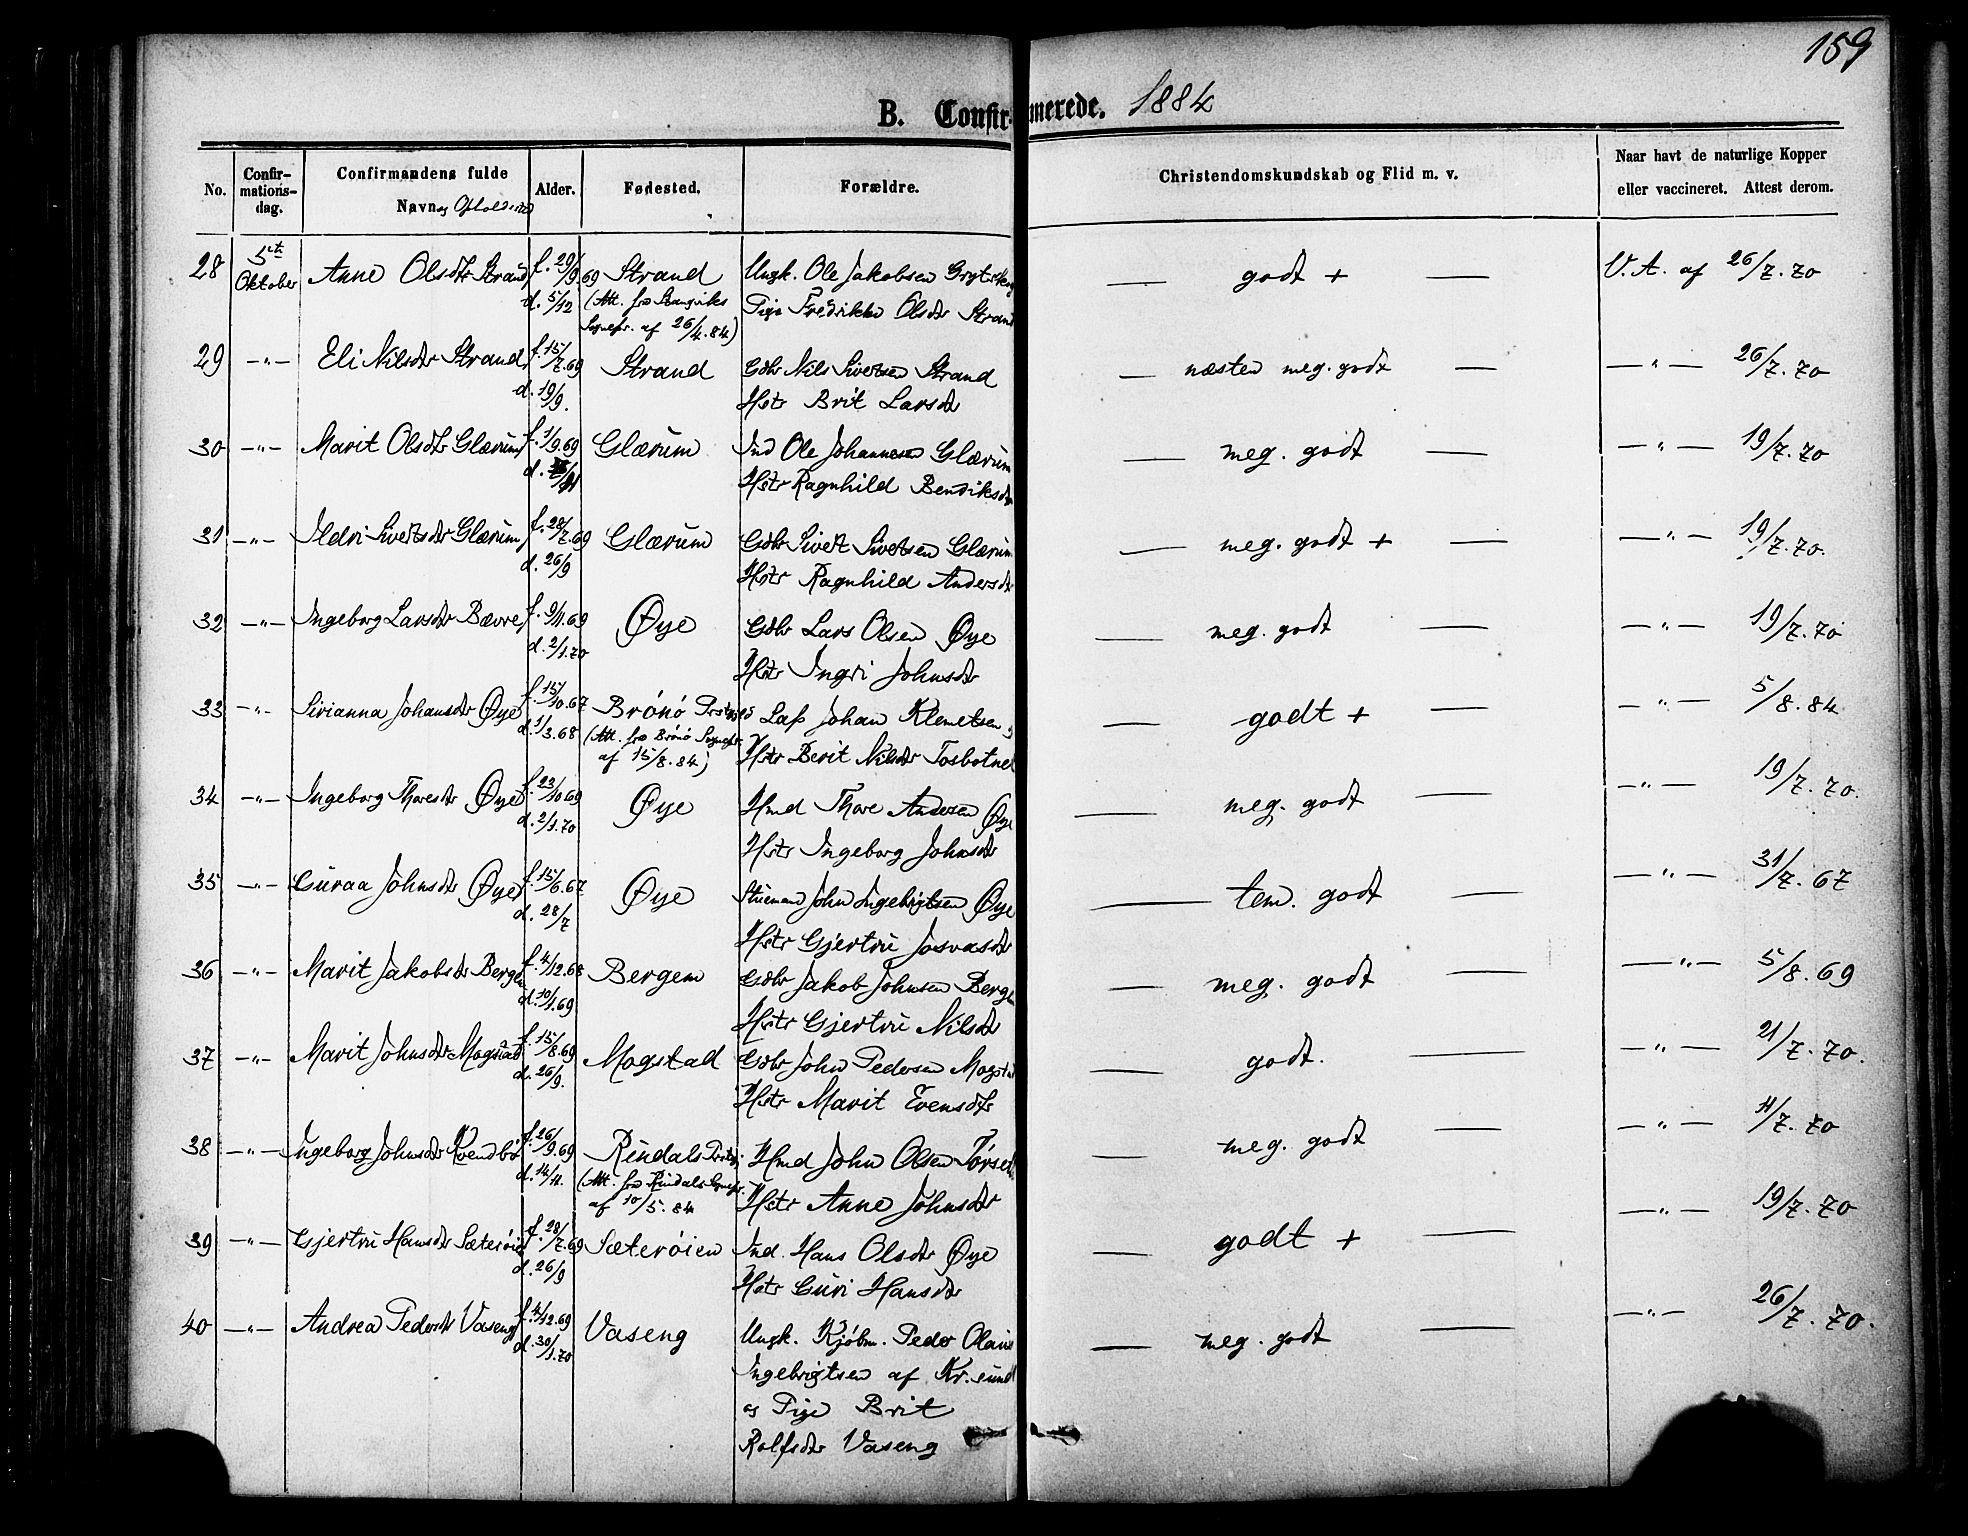 159
B. Confirmerede. 1884
No.
Confirmationsdag.
Confirmandens fulde Navn og Opholdssted
Alder.
Fødested.
Forældre.
Christendomskundskab og Flid m. v.
Naar havt de naturlige Kopper eller vaccineret. Attest derom.
28 5te Oktober Anne Olsdtr Strand f. 29/9.69 Strand Ungk. Ole Jakobsen — godt + — V.A. af 26/7.70
d. 5/12 (Att. fra Stangviks Pige Fredrikke Olsdtr Strand
Sognepr. af 26/4.84)
29 -"- Eli Nilsdtr Strand f. 15/7.69 Strand Gdbr Nils Sivertsen Strand — næsten meg. godt — -"- 26/7.70
d. 19/9. Hstr Brit Larsdtr
30 -"- Marit Olsdtr Glærum f. 1/9.69 Glærum Ind Ole Johannesen Glærum — meg. godt — -"- 19/7.70
d. Hstr Ragnhild Bendiksdtr
31 -"- Ildri Sivertsdtr Glærum f. 28/7.69 Glærum Gdbr Sivert Sivertsen Glærum — meg. godt + — -"- 19/7.70.
d. 26/9 Hstr Ragnhild Andersdtr
32 -"- Ingeborg Larsdtr Bævre f. 9/11.69 Øye Gdbr Lars Olsen Øye — meg. godt — -"- 19/7.70
d. 2/1.70 Hstr Ingri Johnsdtr
33 -"- Sirianna Johansdtr Øye f. 15/10.67 Brønø Prstgjld Johan Klemetsen — godt + — -"- 5/8.84
d. 1/3.68 (Att. fra Brønø Sognepr. Hstr Berit Nilsdtr Tosbotnet
af 15/8.84)
34 -"- Ingeborg Thoresdtr Øye f. 23/10.69 Øye Hmd Thore Andersen Øye — meg. godt — -"- 19/7.70.
d. 2/1.70 Hstr Ingeborg Johnsdtr
35 -"- Guraa Johnsdtr Øye f. 15/6.67 Øye Stuemand John Ingebrigtsen Øye — tem. godt — -"- 31/7.67
d. 28/7 Hstr Gjertru Josvasdtr
36 -"- Marit Jakobsdtr Bergem f. 4/12.68 Bergem Gdbr Jakob Johnsen Bergem — meg. godt — -"- 5/8.69
d. 10/1.69 Hstr Gjertru Nilsdtr
37 -"- Marit Johnsdtr Mogstad f. 15/8.69 Mogstad Gdbr John Pedersen Mogstad — godt. — -"- 21/7.70.
d. 26/9. Hstr Marit Evensdtr
38 -"- Ingeborg Johnsdtr Kvendbø f. 26/9.69 Rindals Prstgj Hmd John Olsen — meg. godt — -"- 11/7.70
d. 14/11. (Att. fra Rindals Sognepr. Hstr Anne Johnsdtr
af 10/5.84
39 -"- Gjertru Hansdtr Sæterøien f. 28/7.69 Sæterøien Ind. Hans Olsdtr Øye — godt + — -"- 19/7.70
d. 26/9 Hstr Guri Hansdtr
40 -"- Andrea Pedersdtr Vaseng f. 4/12.69 Vaseng Ungk. Kjøbm. Peder Olaus — meg. godt — -"- 26/7.70.
d. 30/1.70 Ingebrigtsen af Kr.sund
og Pige Brit
Rolfsdtr Vaseng